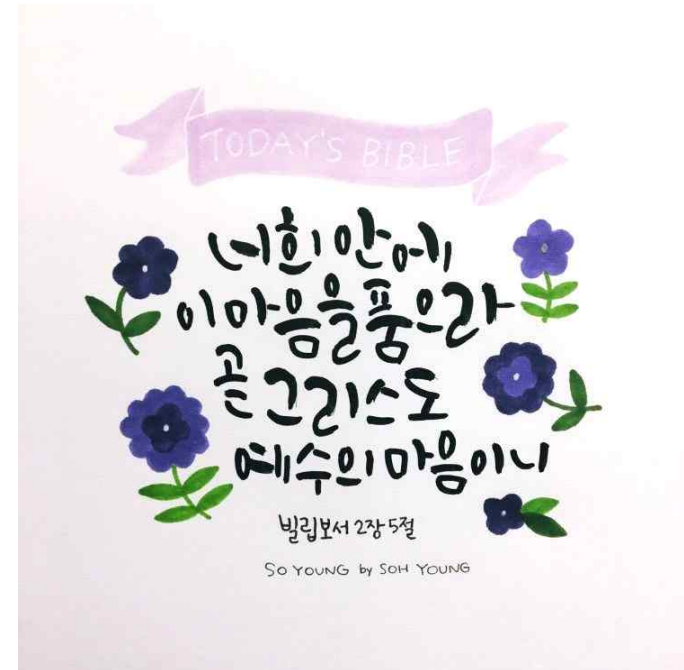 TODAY'S BIBLE
너희 안에
이 마음을 품으라
곧 그리스도
예수의 마음이니
빌립보서 2장 5절
SO YOUNG by SOH YOUNG